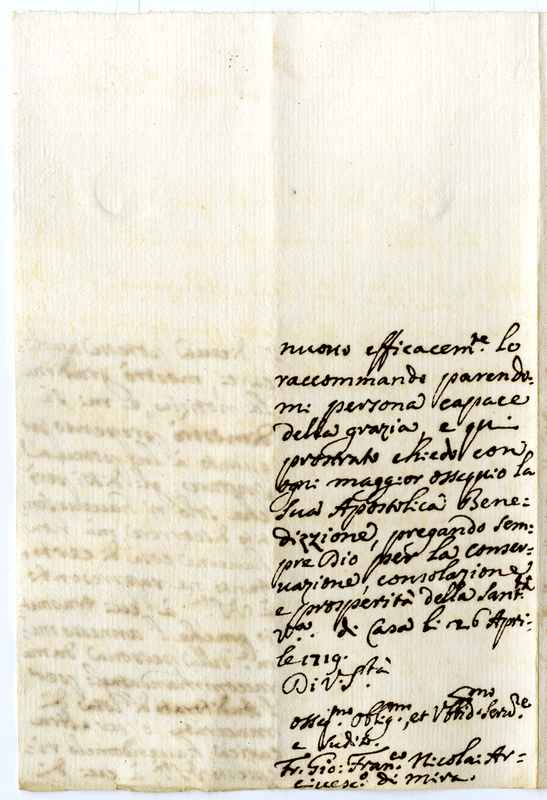 nuovo efficacem.te lo
raccommando parendo:
mi persona capace
della grazia, e qui
prostrato chiedo con
ogni maggior ossequio la
sua Apostolica Bene:
dizzione, pregando sem:
pre Dio per la conser:
vazione, consolazione
e prosperità della Sant.tà
V.ra. di Casa li 26 Apri:
le 1719.
Di V. S.tà
osseq.mo oblig.mo, et Obbid.mo Serv.re
e sudito.
Fr. Gio: Fran.co Nicolai Ar:
civesc.o di Mira.